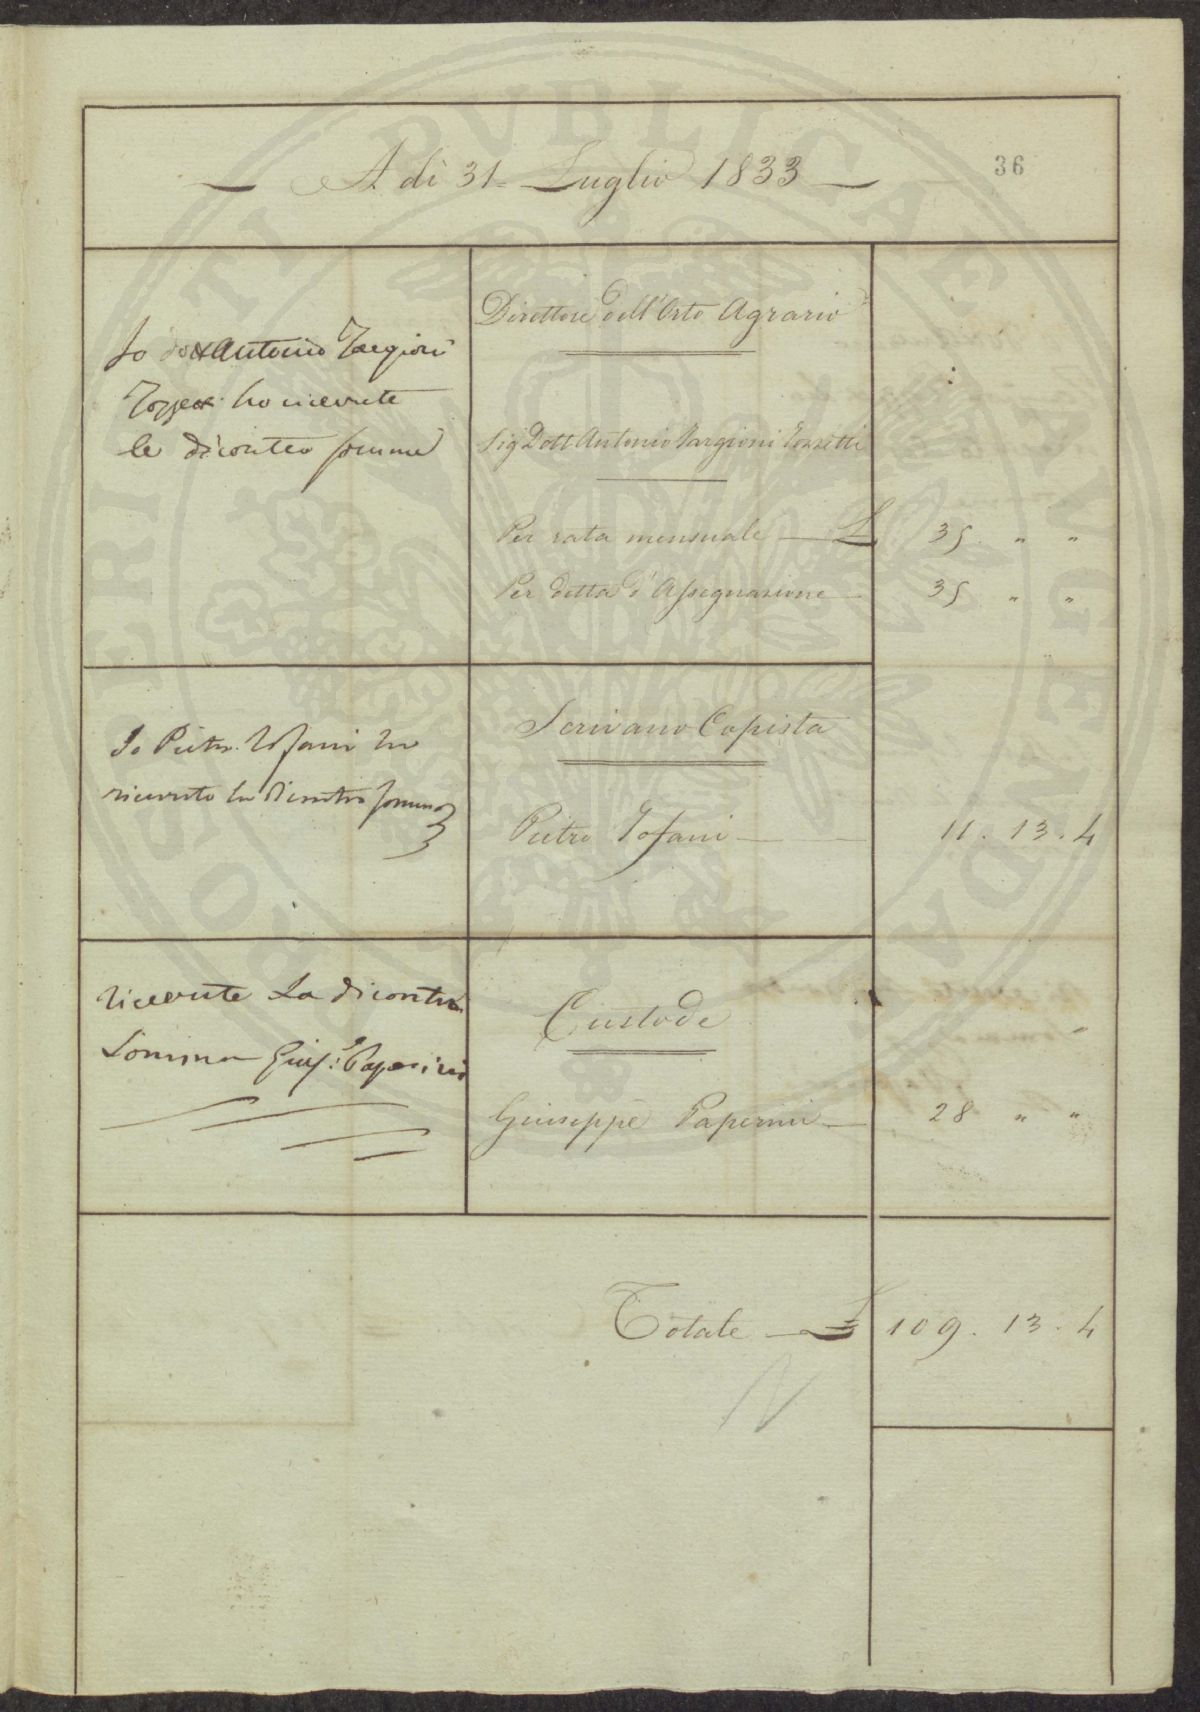 A dì 31. Luglio 1833
36
Io dott Antonio Targioni
Tozzetti ho ricevute
le dicontro somme
Direttore dell'Orto Agrario
Sig Dott Antonio Targioni Tozzetti
Per rata mensuale — £ 35 " "
Per detta d'Assegnazione — 35 " "
Io Pietro Tofani ho
ricevuto la dicontro somma
Scrivano Copista
Pietro Tofani — 11. 13. 4
ricevute La dicontro
Somma Giusֶ: Paperini
Custode
Giuseppe Paperini — 28 " "
Totale — £ 109. 13. 4